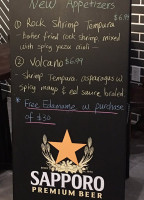 New Appetizers
① Rock Shrimp Tempura $6.99
- Batter fried rock shrimp mixed
with spicy yuzu aioli -
② Volcano $6.99
- Shrimp Tempura, asparagus w/
spicy mayo & eel sauce broiled
* Free Edamame w purchase
of $30
SAPPORO
PREMIUM BEER